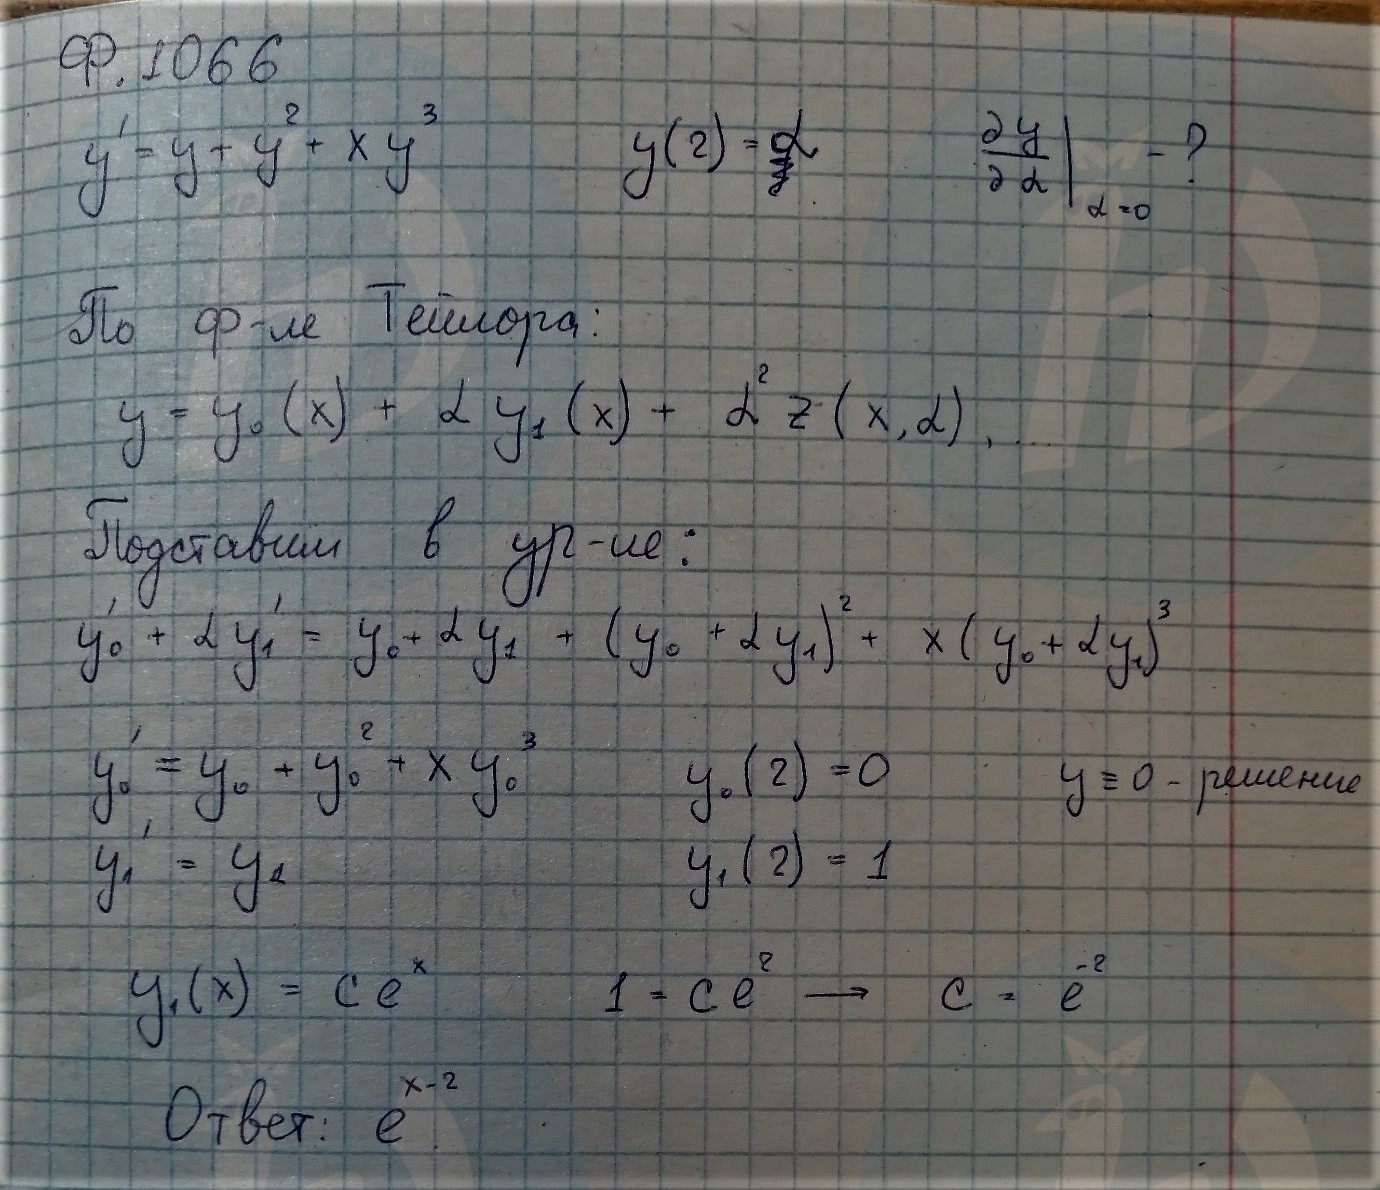 Ф. 1066
y' = y + y² + xy³ y(2) = α ∂y/∂α |α=0 - ?
По ф-ле Тейлора:
y = y₀(x) + αy₁(x) + α²z(x,α), ...
Подставим в ур-ие:
y₀' + αy₁' = y₀ + αy₁ + (y₀ + αy₁)² + x(y₀ + αy₁)³
y₀' = y₀ + y₀² + xy₀³ y₀(2) = 0 y ≡ 0 - решение
y₁' = y₁ y₁(2) = 1
y₁(x) = ceˣ 1 = ce² → c = e⁻²
Ответ: eˣ⁻².